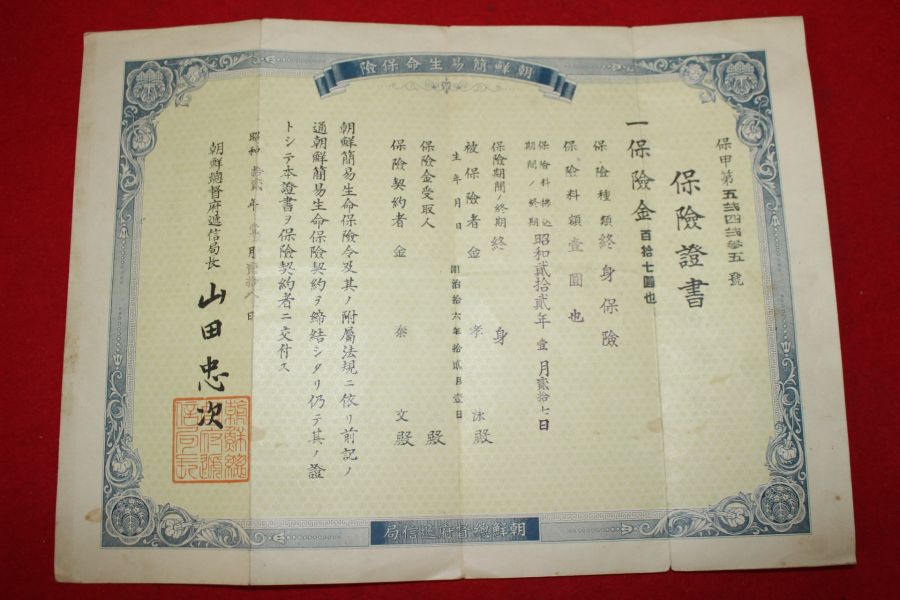 朝鮮簡易生命保險
保甲第五弐四弐參五號
保險證書
一保險金 百拾七圓也
保險種類 終身保險
保險料額 壹圓也
保險料拂込期間ノ終期 昭和貳拾貳年壹月貳拾七日
保險期間ノ終期 終身
被保險者 金孝 殿
生年月日 明治拾六年拾貳月壹日
保險金受取人 殿
保險契約者 金泰文殿
朝鮮簡易生命保險令及其ノ附屬法規ニ依リ前記ノ
通朝鮮簡易生命保險契約ヲ締結シタリ仍テ其ノ證
トシテ本證書ヲ保險契約者ニ交付ス
昭和拾貳年壹月貳拾八日
朝鮮總督府遞信局長 山田忠次
朝鮮總督府遞信局